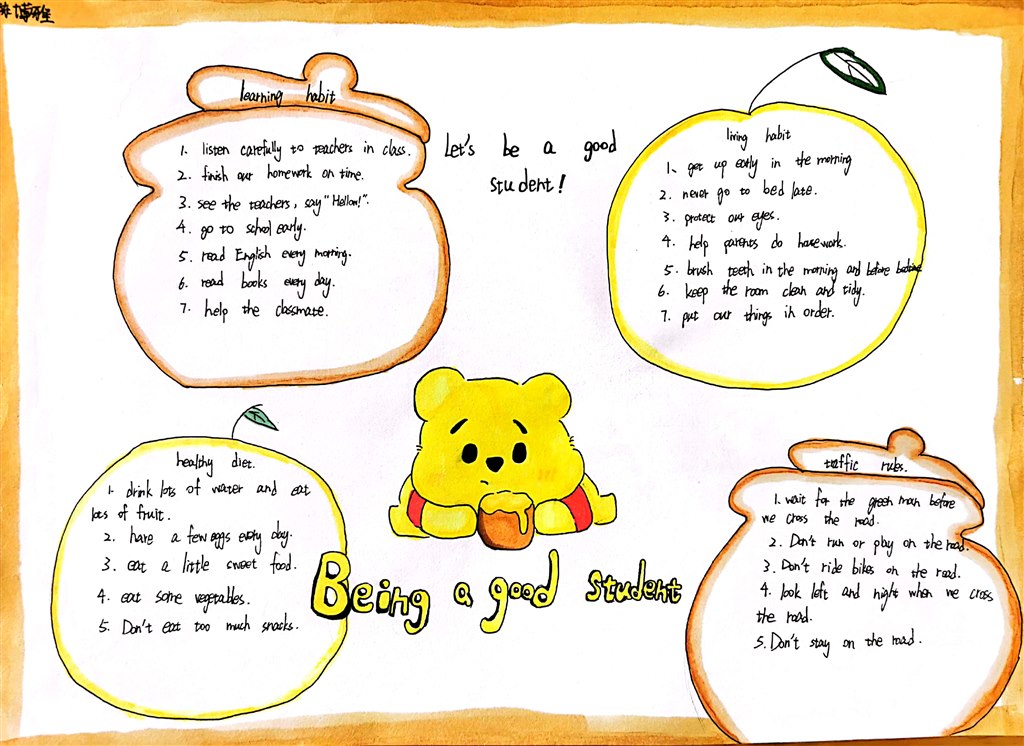 learning habit
1. listen carefully to teachers in class.
2. finish our homework on time.
3. see the teachers, say "Hellow!".
4. go to school early.
5. read English every morning.
6. read books every day.
7. help the classmate.
Let's be a good
student!
living habit
1. get up early in the morning
2. never go to bed late.
3. protect our eyes.
4. help parents do housework.
5. brush teeth in the morning and before bedtime
6. keep the room clean and tidy.
7. put our things in order.
healthy diet.
1. drink lots of water and eat
lots of fruit.
2. have a few eggs every day.
3. eat a little sweet food.
4. eat some vegetables.
5. Don't eat too much snacks.
Being a good student
traffic rules.
1. wait for the green man before
we cross the road.
2. Don't run or play on the road.
3. Don't ride bikes on the road.
4. look left and right when we cross
the road.
5. Don't stay on the road.